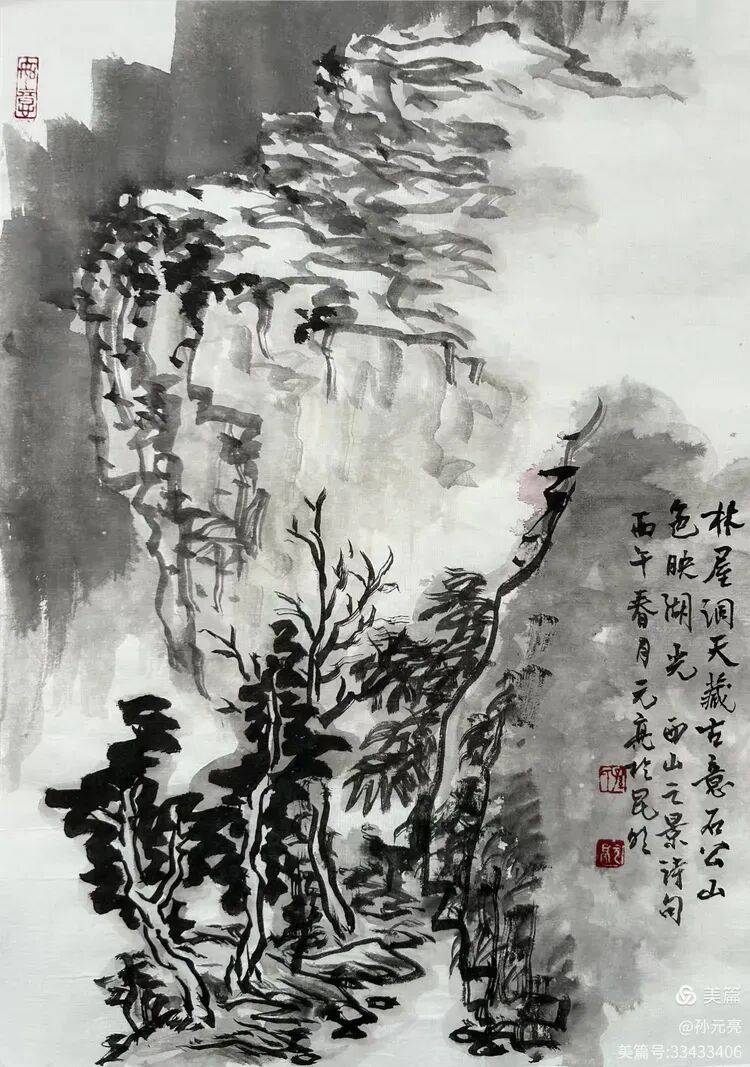 林屋洞天藏古意石公山
色映湖光 西山之景诗句
丙午春月元亮於昆明
美篇
@孙元亮
美篇号:33433406